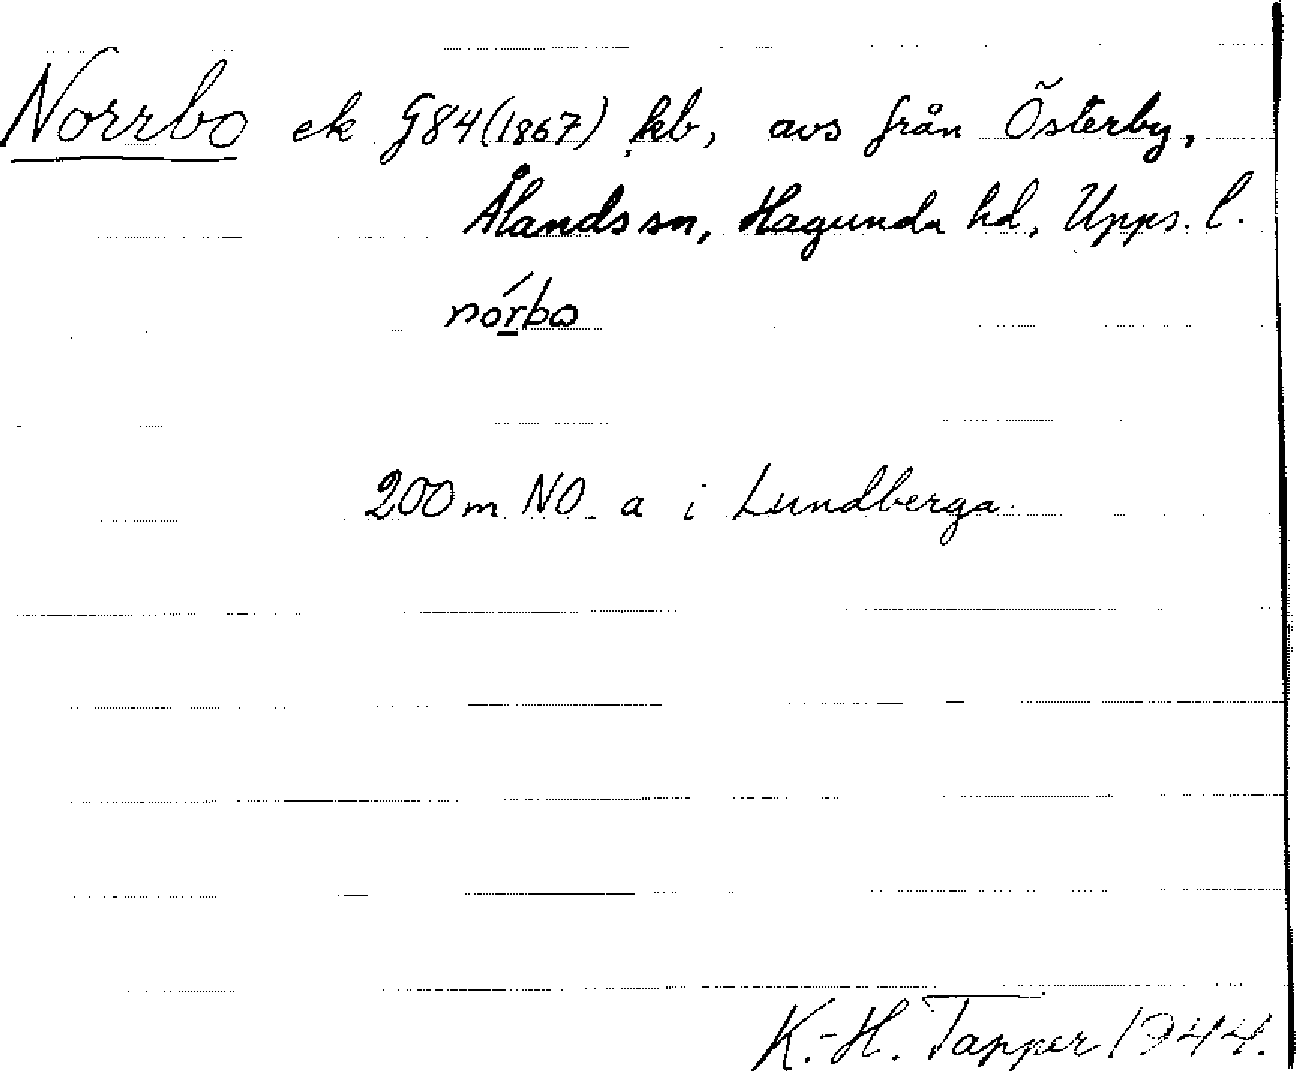 Norrbo ek G84 (1867) kb, avs från Österby,
Ålands sn, Hagunda hd, Upps. l.
nórbo
200 m NO a i Lundberga.
K.-H. Tapper 1944.